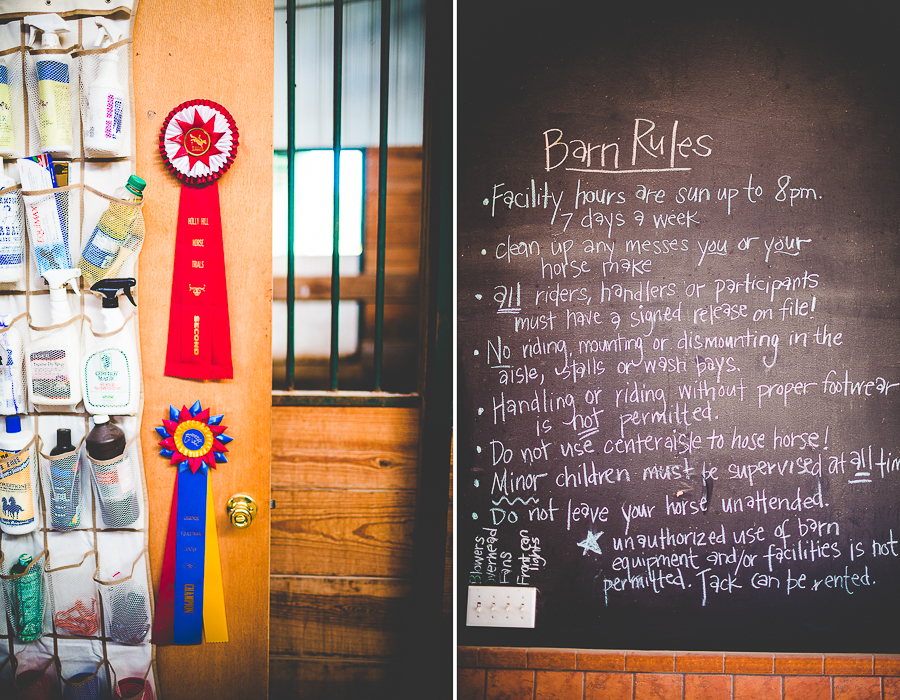 HOLLY HILL
HORSE
TRIALS
SECOND
CHAMPION
Barn Rules
• Facility hours are sun up to 8pm.
7 days a week
• clean up any messes you or your
horse make
• all riders, handlers or participants
must have a signed release on file!
• No riding, mounting or dismounting in the
aisle, stalls or wash bays.
• Handling or riding without proper footwear
is not permitted.
• Do not use center aisle to hose horse!
• Minor children must be supervised at all tim
• Do not leave your horse unattended.
unauthorized use of barn
equipment and/or facilities is not
permitted. Tack can be rented.
Blowers
overhead
Fans
Front Door
lights